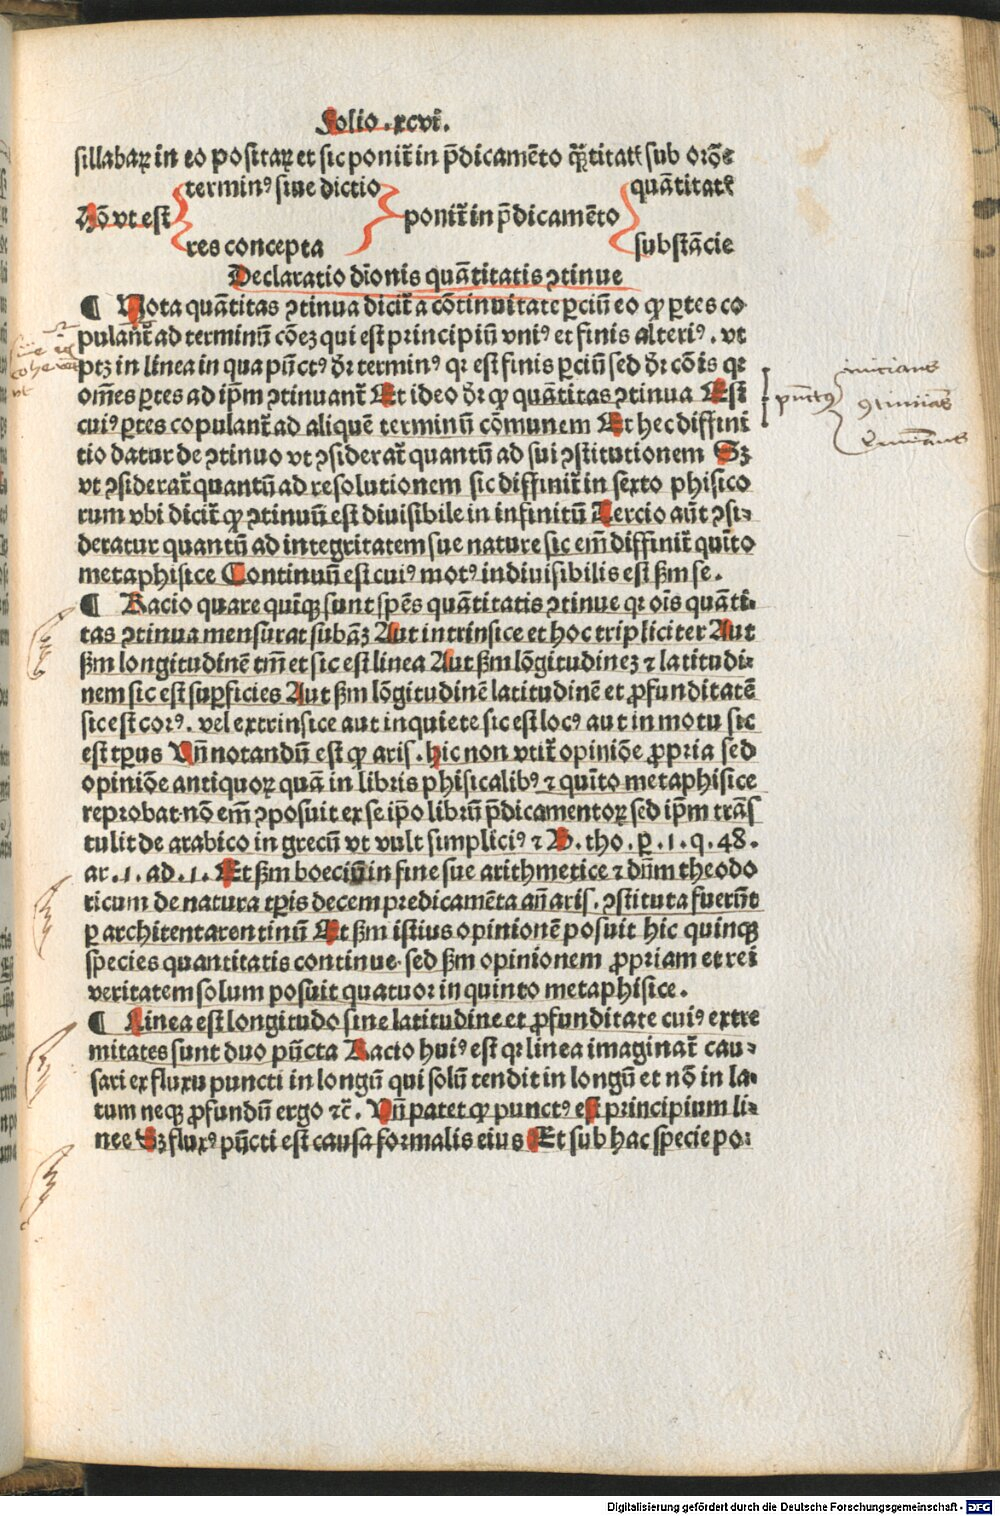 Folio .xcvi.
sillabaꝝ in eo positaꝝ et sic ponit᷑ in p̄dicamēto q̄titatꝭ sub orōe
terminꝰ siue dictio
quātitatꝭ
Hō vt est
ponit᷑ in p̄dicamēto
res concepta
substācie
Declaratio diōnis quātitatis ꝯtinue
¶ Nota quātitas ꝯtinua dicit᷑ a cōtinuitate ꝑciū eo ꝙ ꝑtes co
pulant᷑ ad terminū cōeꝫ qui est principiū vniꝰ et finis alteriꝰ . vt
ptꝫ in linea in qua pūctꝰ dr̄ terminꝰ qꝛ est finis ꝑciū sed dr̄ cōis qꝛ
om̄es ꝑtes ad ip̄m ꝯtinuant᷑ Et ideo dr̄ ꝙ quātitas ꝯtinua Est
cuiꝰ ꝑtes copulant᷑ ad aliquē terminū cōmunem Et hec diffini
tio datur de ꝯtinuo vt ꝯsiderat᷑ quantū ad sui ꝯstitutionem Sꝫ
vt ꝯsiderat᷑ quantū ad resolutionem sic diffinit᷑ in sexto phisico
rum vbi dicit᷑ ꝙ ꝯtinuū est diuisibile in infinitū Tercio aūt ꝯsi⸗
deratur quantū ad integritatem sue nature sic em̄ diffinit᷑ quīto
metaphisice Continuū est cuiꝰ motꝰ indiuisibilis est ẜm se .
¶ Racio quare quīqꝫ sunt sp̄es quātitatis ꝯtinue qꝛ ois quāti⸗
tas ꝯtinua mensurat subāꝫ Aut intrinsice et hoc tripliciter Aut
ẜm longitudinē tm̄ et sic est linea Aut ẜm lōgitudineꝫ ⁊ latitudi⸗
nem sic est suꝑficies Aut ẜm lōgitudinē latitudinē et ꝓfunditatē
sic est corꝰ . vel extrinsice aut inquiete sic est locꝰ aut in motu sic
est tꝑus Vn̄ notandū est ꝙ aris . hic non vtit᷑ opiniōe ꝓpria sed
opiniōe antiquoꝝ quā in libris phisicalibꝰ ⁊ quīto metaphisice
reprobat nō em̄ ꝯposuit ex se ip̄o librū p̄dicamentoꝝ sed ip̄m trās
tulit de arabico in grecū vt vult simpliciꝰ ⁊ B . tho . ꝑ . 1 . q . 48 .
ar . 1 . ad . 1 . Et ẜm boeciū in fine sue arithmetice ⁊ dn̄m theodo
ricum de natura tꝑis decem predicamēta an̄ aris . ꝯstituta fuerūt
ꝑ architentarentinū Et ẜm istius opinionē posuit hic quinqꝫ
species quantitatis continue sed ẜm opinionem ꝓpriam et rei
veritatem solum posuit quatuor in quinto metaphisice .
¶ Linea est longitudo sine latitudine et ꝓfunditate cuiꝰ extre
mitates sunt duo pūcta Racio huiꝰ est qꝛ linea imaginat᷑ cau⸗
sari ex fluxu puncti in longū qui solū tendit in longū et nō in la⸗
tum neqꝫ ꝓfundū ergo ⁊c̄ . Vn̄ patet ꝙ punctꝰ est principium li⸗
nee Sꝫ fluxꝰ pūcti est causa formalis eius Et sub hac specie po⸗
pūctꝰ
inicians
ꝯtinuās
Digitalisierung gefördert durch die Deutsche Forschungsgemeinschaft - DFG